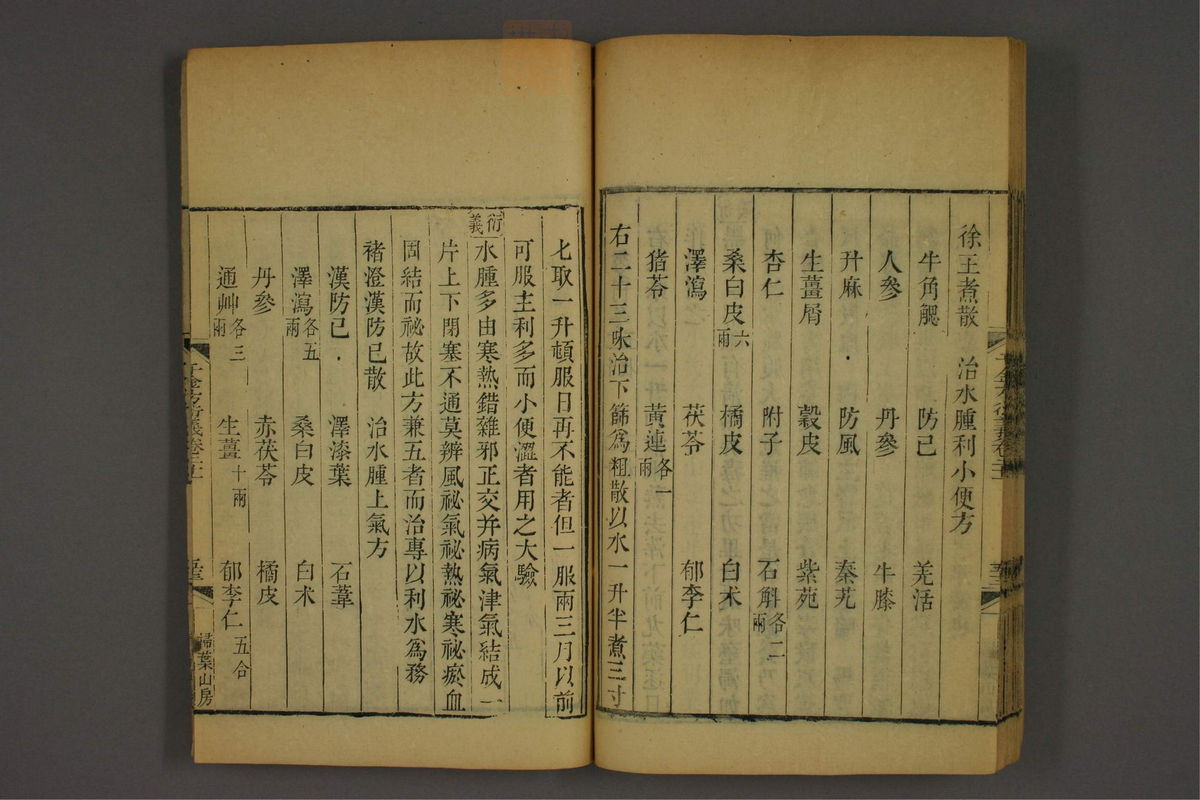 徐王煮散 治水腫利小便方
牛角䚡 防己 羌活
人參 丹參 牛膝
升麻 防風 秦艽
生薑屑 穀皮 紫苑
杏仁 附子 石斛各二兩
桑白皮六兩 橘皮 白朮
澤瀉 茯苓 郁李仁
猪苓 黃連各一兩
右二十三味治下篩爲粗散以水一升半煮三寸
匕取一升頓服日再不能者但一服兩三月以前
可服主利多而小便澀者用之大驗
衍義 水腫多由寒熱錯雜邪正交并病氣津氣結成一
片上下閉塞不通莫辨風祕氣祕熱祕寒祕瘀血
固結而祕故此方兼五者而治專以利水爲務
褚澄漢防己散 治水腫上氣方
漢防己 澤漆葉 石葦
澤瀉各五兩 桑白皮 白朮
丹參 赤茯苓 橘皮
通艸各三兩 生薑十兩 郁李仁五合
千金方衍義卷二十一
掃葉山房